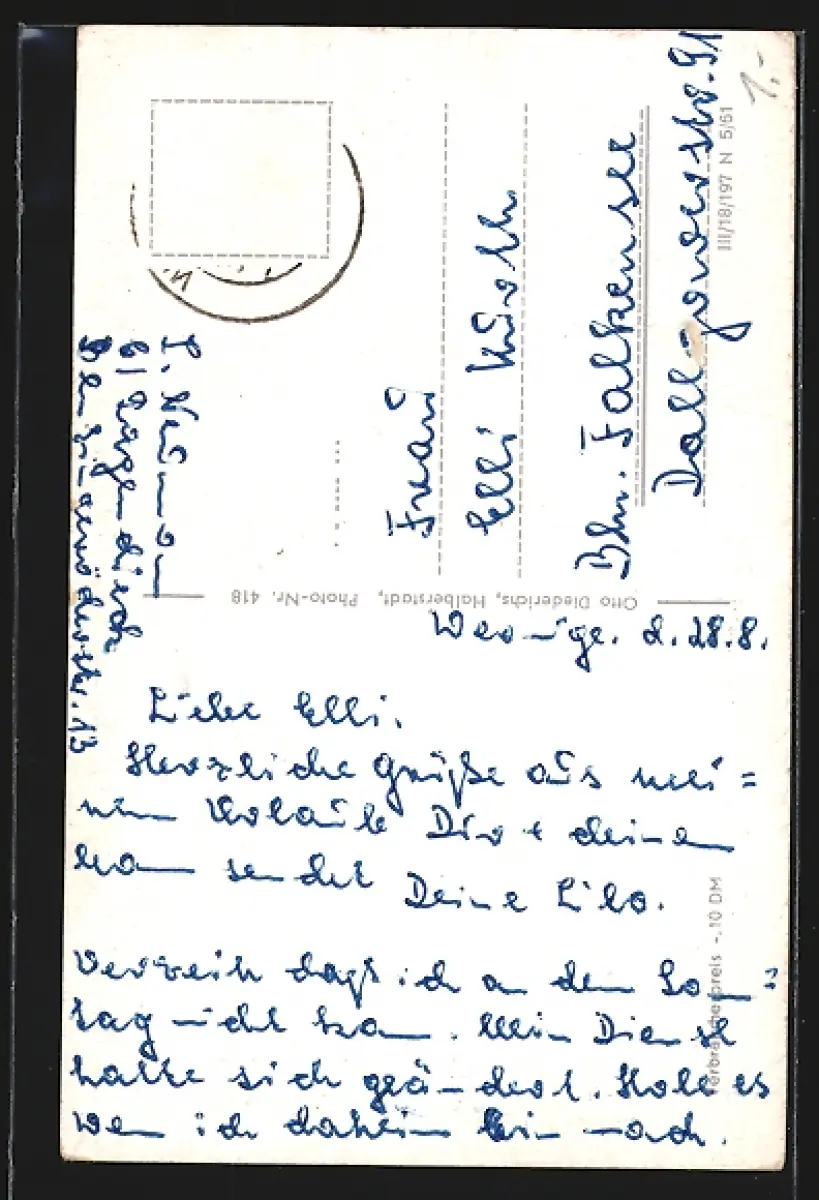 Wernige. d. 28.8.
Liebe Elli.
Herzliche Grüße aus mei=
nem Urlaub Dir + deinen
sendet
Deine Lilo.
Verzeih dass ich an dem Son=
tag nicht kam. Mein Dienst
hatte sich geändert. Hole es
wen ich daheim bin nach.
Frau
Elli
Bhn. Falkensee
Dallgowerstr. 91
61
str. 13
Otto Diederichs, Halberstadt, Photo-Nr. 418
III/18/197 N 5/61
Verbraucherpreis -.10 DM
1.-